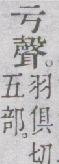 亏聲。
羽俱切
五部。